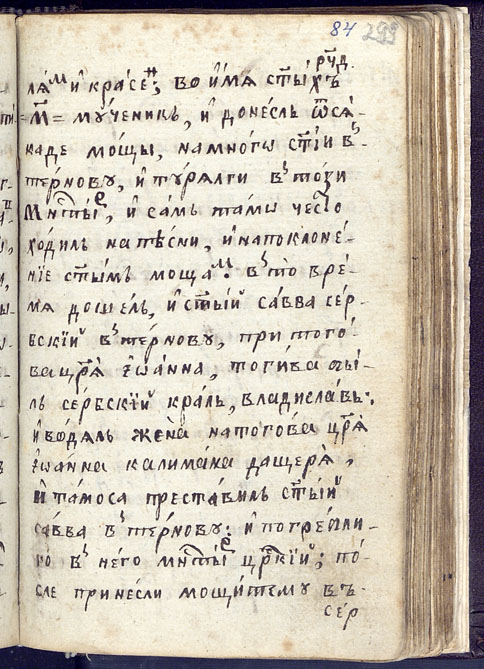 84 299
рч҃д.
ля́м и кра́сен, во и́мя ст҃ы́хъ
м҃ = му́ченикъ, и донеслъ ѿся-
каде мо́щы, на мно́гѡ ст҃і́и въ
те́рнову, и туря́лги въ то́зи
мнсты́рь, и самъ тамѡ често
ходилъ на пѣсни, и на поклоне́-
ніе ст҃ы́мъ моща́м. въ то̀ вре́-
мя доше́лъ, и ст҃ы́й са́вва се́р-
бскїй въ те́рнову, при того́-
ва цр҃я̀ іѡа́нна, тоги́ва бы́-
лъ се́рбскїй кра́лъ, владисла́въ.
и во́дялъ жена̀ на того́ва цр҃я̀
іѡа́нна калима́на дащеря̀,
и та́мо са преста́вилъ ст҃ы́й
са́вва въ те́рнову: и погребли-
го въ не́го мнсты́рь цр҃кїй; по́-
сле принесли мощи́те му въ-
се́р